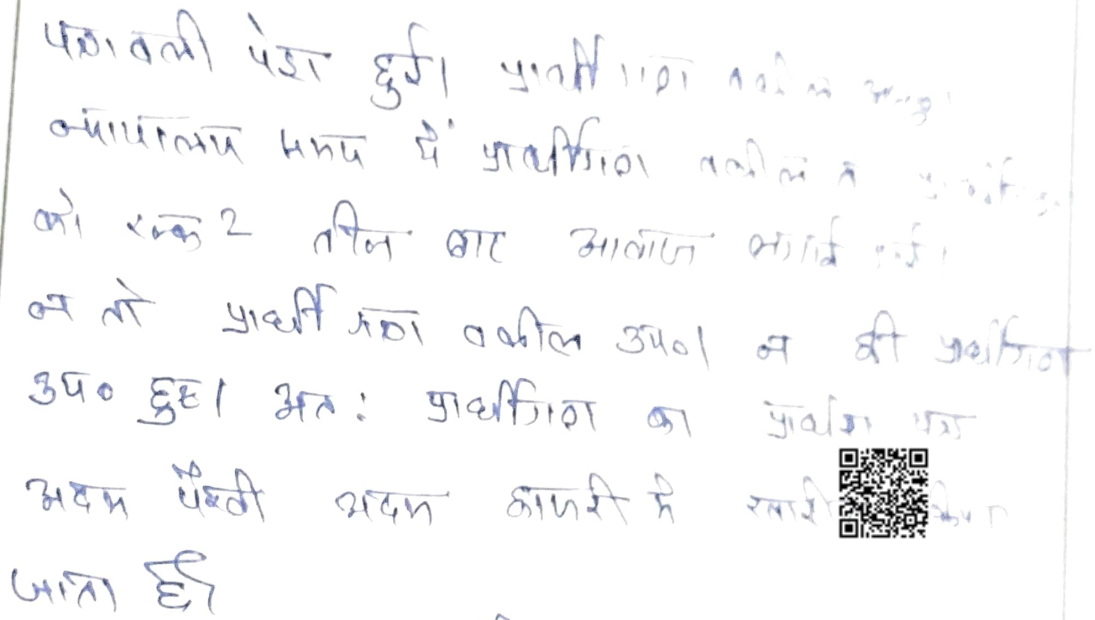 पत्रावली पेश हुई। प्रार्थीगण वकील अनु०
न्यायालय समय में प्रार्थीगण वकील व प्रार्थीगण
को रूक 2 तीन बार आवाज लगाई गई।
न तो प्रार्थीगण वकील उप०। न ही प्रार्थीगण
उप० हुए। अतः प्रार्थीगण का प्रार्थना पत्र
अदम पैरवी अदम हाजरी मे खारी किया
जाता है।